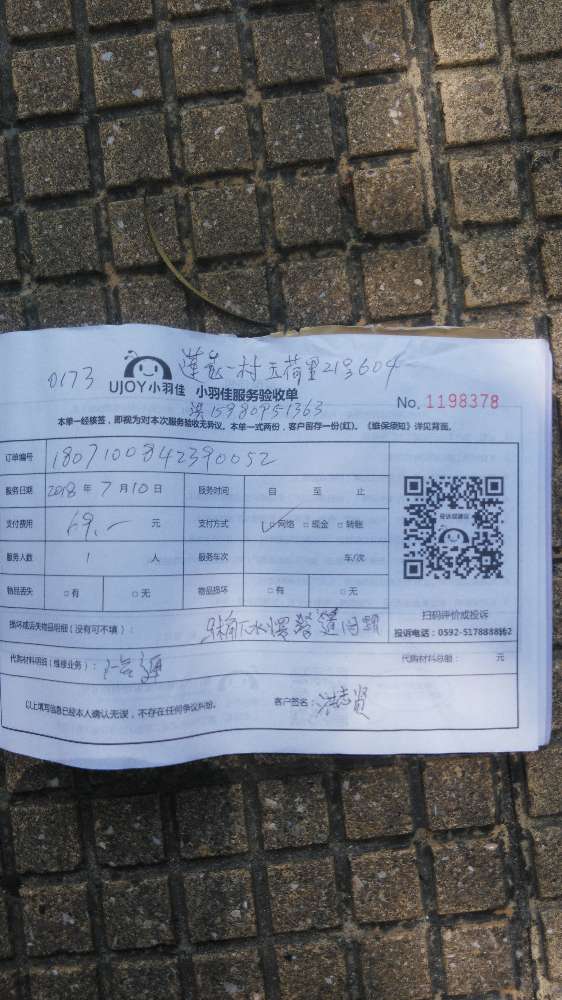 0173 莲花一村五荷里21号604
UJOY小羽佳 小羽佳服务验收单
洪15980951363 No. 1198378
本单一经核签，即视为对本次服务验收无异议。本单一式两份，客户留存一份(红)。《维保须知》详见背面。
订单编号 1807100842390052
服务日期 2018年7月10日 服务时间 自 至 止
支付费用 69.- 元 支付方式 ✓□网络 □现金 □转账
服务人数 1 人 服务车次 车/次
物品丢失 □有 □无 物品损坏 □有 □无
投诉或建议
扫码评价或投诉
投诉电话：0592-5178888转62
损坏或丢失物品明细（没有可不填）： 下水慢 管道问题
代购材料明细(维修业务)： 代购材料总额： 元
以上填写信息已经本人确认无误，不存在任何争议纠纷。 客户签名：洪志贤